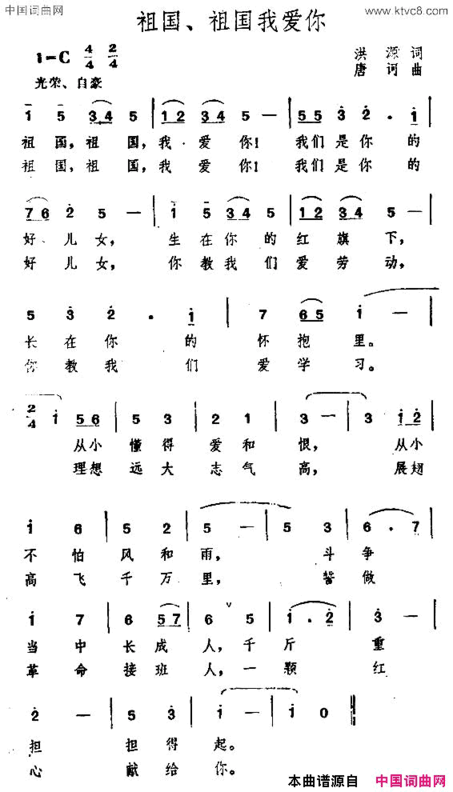 中国词曲网
www.ktvc8.com
祖国、祖国我爱你
1=C 4/4 2/4
洪源词
唐诃曲
光荣、自豪
i 5 34 5 | i2 34 5 — | 55 3 2 . i |
祖国,祖国,我爱你! 我们是你的
祖国,祖国,我爱你! 我们是你的
76 2 5 — | i 5 34 5 | i2 34 5 — |
好儿女, 生在你的红旗下,
好儿女, 你教我们爱劳动,
5 3 2 . i | 7 65 i — |
长在你的怀抱里。
你教我们爱学习。
2/4 i 56 | 5 3 | 2 1 | 3 — | 3 i2 |
从小懂得爱和恨, 从小
理想远大志气高, 展翅
i 6 | 5 2 | 5 — | 5 — | 3 5 | 6 . 7 |
不怕风和雨, 斗争
高飞千万里, 誓做
i 7 | 6 57 | 6 V 5 | i . 2 | 3 — |
当中长成人,千斤重
革命接班人,一颗红
2 — | 5 3 | i — | i 0 ‖
担担得起。
心献给你。
本曲谱源自 中国词曲网